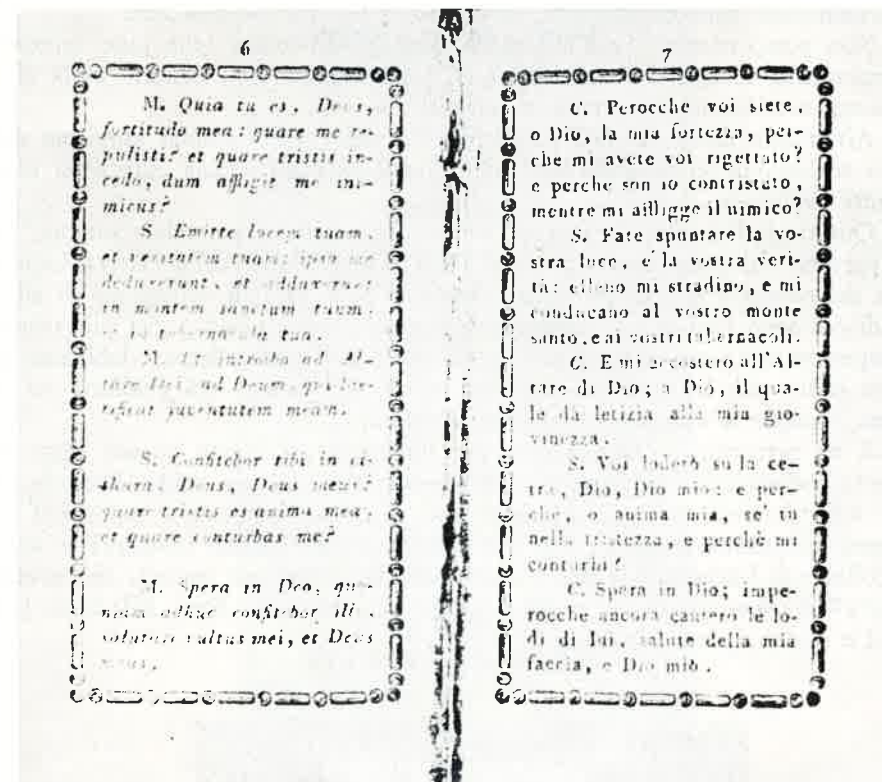 6
M. Quia tu es, Deus,
fortitudo mea: quare me re-
pulisti? et quare tristis in-
cedo, dum affligit me ini-
micus?
S. Emitte lucem tuam,
et veritatem tuam: ipsa me
deduxerunt, et adduxerunt
in montem sanctum tuum,
et in tabernacula tua.
M. Et introibo ad Al-
tare Dei, ad Deum, qui lae-
tificat juventutem meam.
S. Confitebor tibi in ci-
thara, Deus, Deus meus:
quare tristis es anima mea,
et quare conturbas me?
M. Spera in Deo, quo-
niam adhuc confitebor illi,
salutare vultus mei, et Deus
meus.
7
C. Perocche voi siete,
o Dio, la mia fortezza, per-
che mi avete voi rigettato?
e perche son io contristato,
mentre mi affligge il nimico?
S. Fate spuntare la vo-
stra luce, e la vostra veri-
tà: elleno mi stradino, e mi
conducano al vostro monte
santo, e ai vostri tabernacoli.
C. E mi accosterò all'Al-
tare di Dio; a Dio, il qua-
le dà letizia alla mia gio-
vinezza.
S. Voi loderò su la ce-
tra, Dio, Dio mio: e per-
chè, o anima mia, se' tu
nella tristezza, e perchè mi
conturbi?
C. Spera in Dio; impe-
rocche ancora canterò le lo-
di di lui, salute della mia
faccia, e Dio mio.